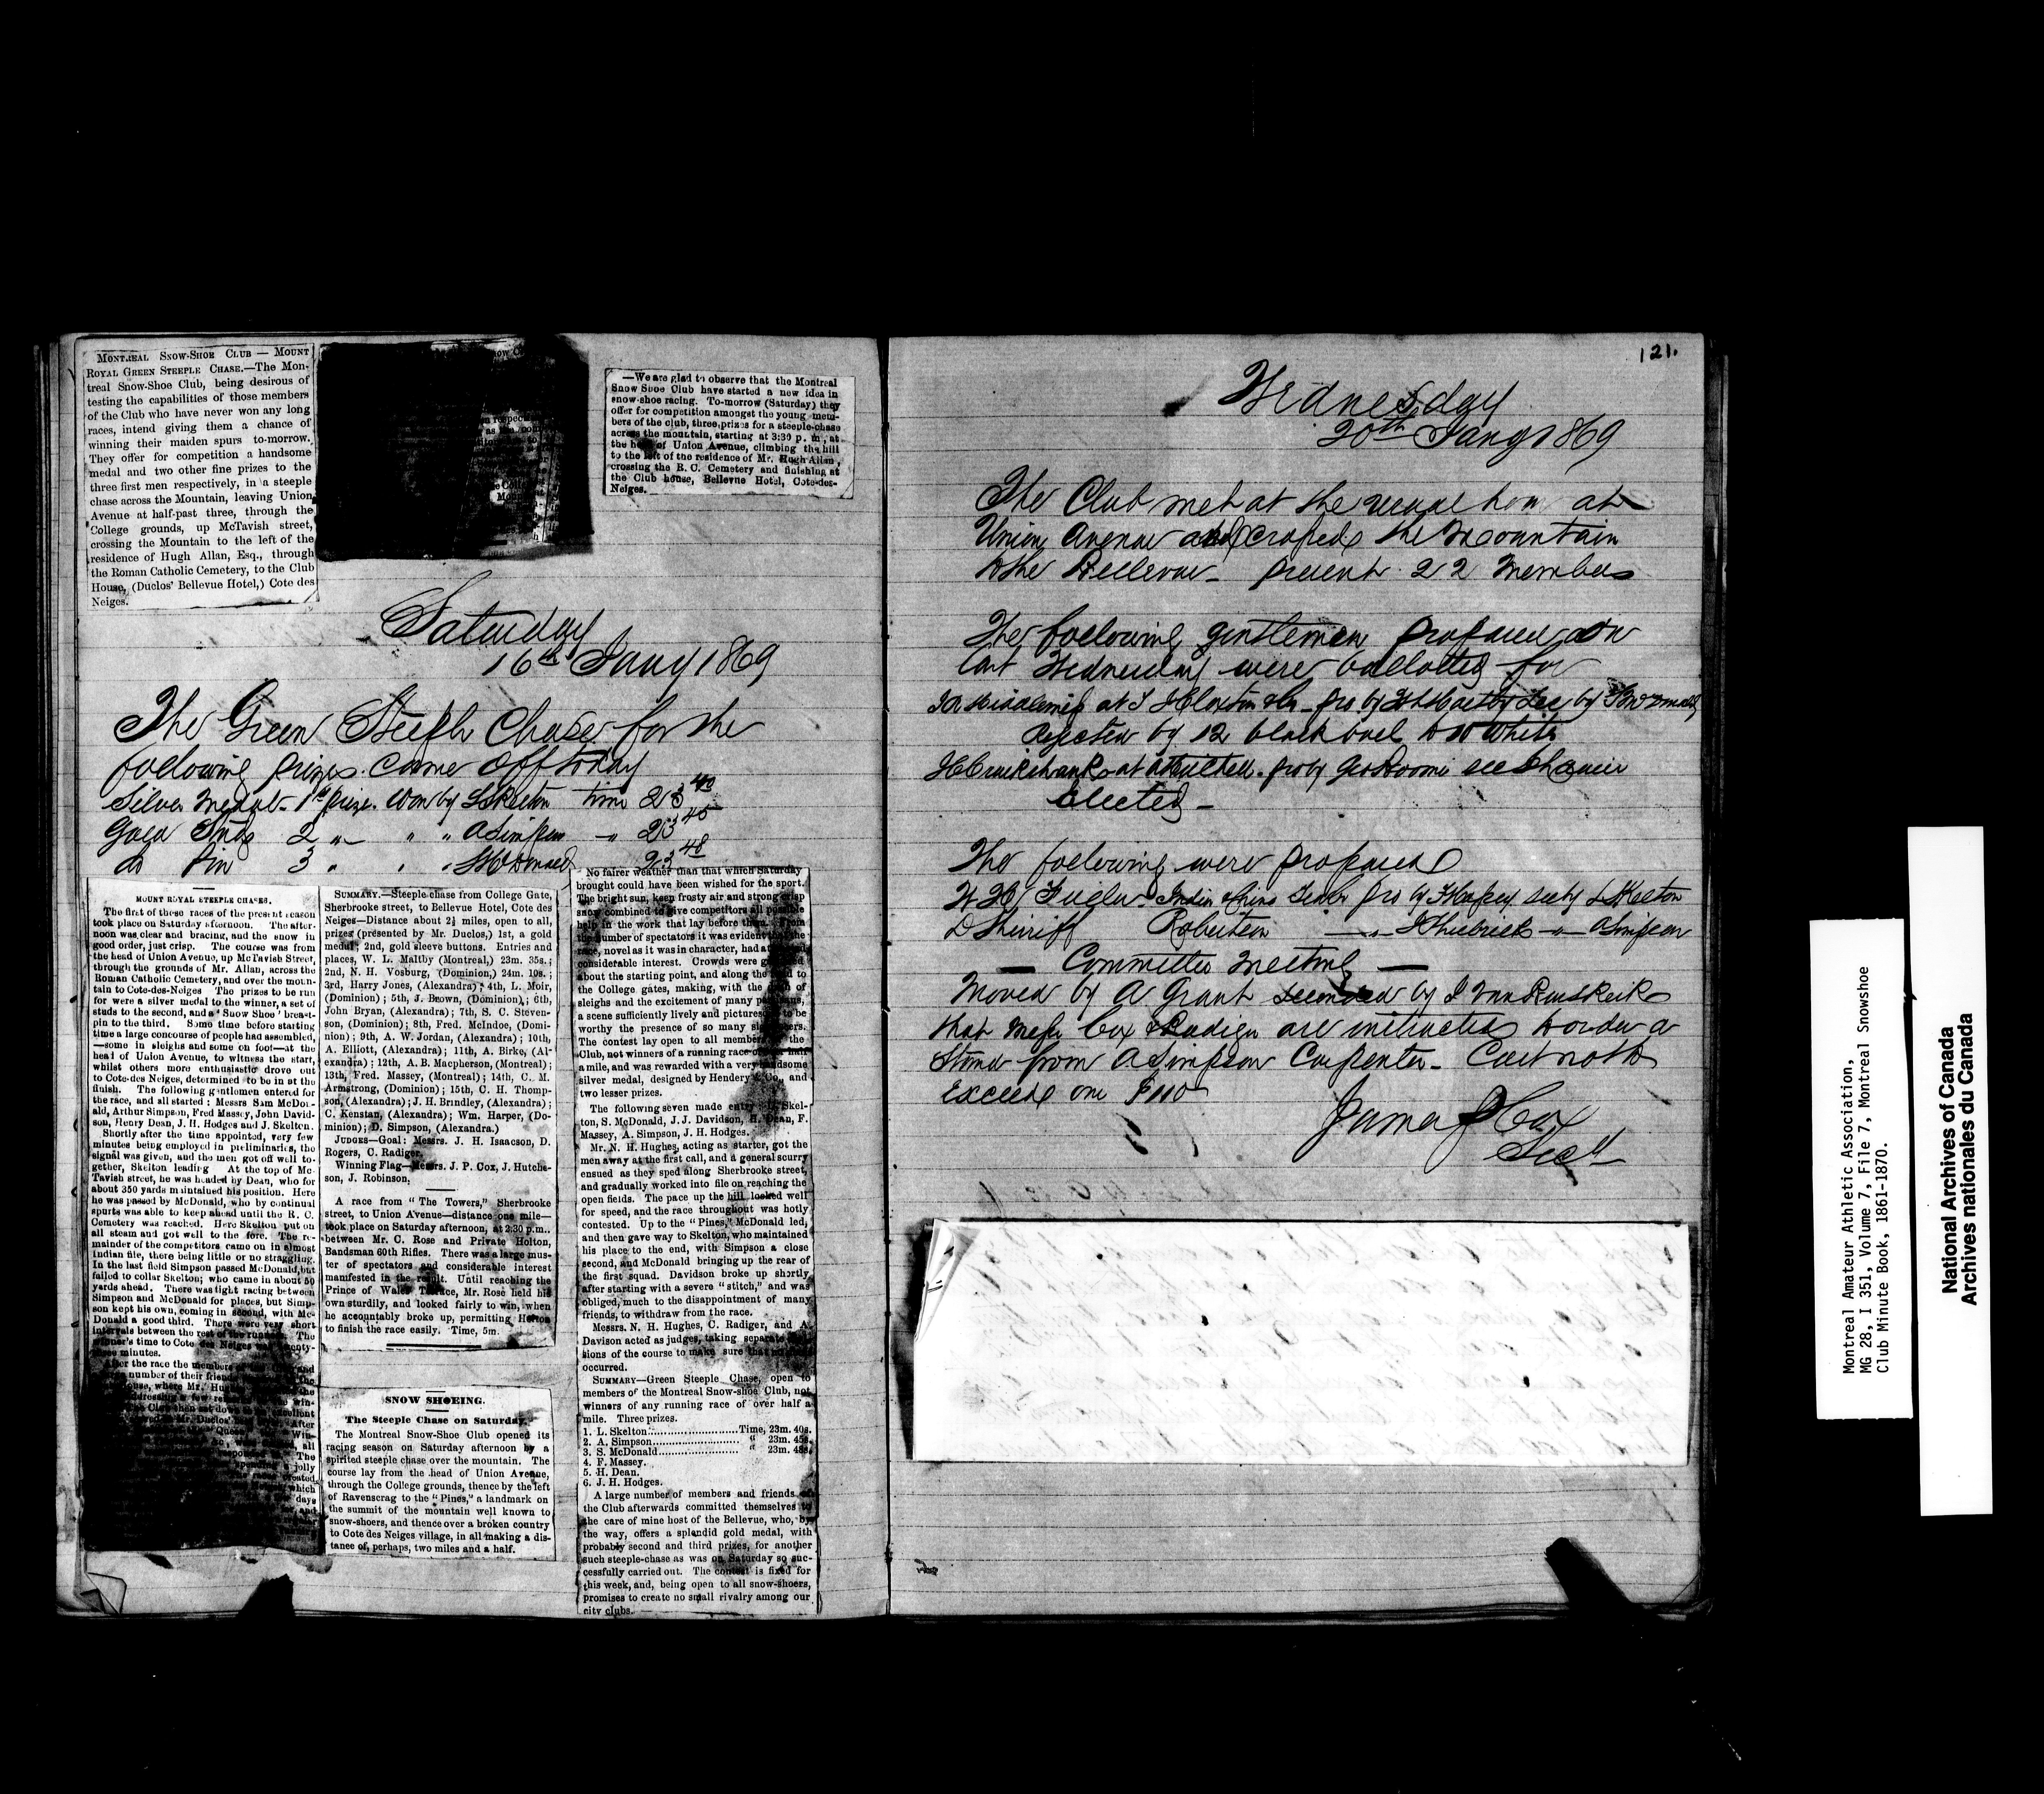 MONTREAL SNOW-SHOE CLUB — MOUNT
ROYAL GREEN STEEPLE CHASE.—The Mon-
treal Snow-Shoe Club, being desirous of
testing the capabilities of those members
of the Club who have never won any long
races, intend giving them a chance of
winning their maiden spurs to-morrow.
They offer for competition a handsome
medal and two other fine prizes to the
three first men respectively, in a steeple
chase across the Mountain, leaving Union
Avenue at half-past three, through the
College grounds, up McTavish street,
crossing the Mountain to the left of the
residence of Hugh Allan, Esq., through
the Roman Catholic Cemetery, to the Club
House, (Duclos' Bellevue Hotel,) Cote des
Neiges.
—We are glad to observe that the Montreal
Snow Shoe Club have started a new idea in
snow-shoe racing. To-morrow (Saturday) they
offer for competition amongst the young mem-
bers of the club, three prizes for a steeple-chase
across the mountain, starting at 3:30 p. m., at
the head of Union Avenue, climbing the hill
to the left of the residence of Mr. Hugh Allan,
crossing the R. C. Cemetery and finishing at
the Club house, Bellevue Hotel, Cote-des-
Neiges.
Saturday
16th Jany 1869
The Green Steeple Chase for the
following prizes came off today
Silver Medal - 1st prize. Won by L Skelton time 23 40
Gold Studs 2 " " " A Simpson " 23 45
do Pin 3 " " " S McDonald 23 48
MOUNT ROYAL STEEPLE CHASES.
The first of these races of the present season
took place on Saturday afternoon. The after-
noon was clear and bracing, and the snow in
good order, just crisp. The course was from
the head of Union Avenue, up McTavish Street,
through the grounds of Mr. Allan, across the
Roman Catholic Cemetery, and over the moun-
tain to Cote-des-Neiges The prizes to be run
for were a silver medal to the winner, a set of
studs to the second, and a 'Snow Shoe' breast-
pin to the third. Some time before starting
time a large concourse of people had assembled,
—some in sleighs and some on foot—at the
head of Union Avenue, to witness the start,
whilst others more enthusiastic drove out
to Cote-des Neiges, determined to be in at the
finish. The following gentlemen entered for
the race, and all started: Messrs Sam McDon-
ald, Arthur Simpson, Fred Massey, John David-
son, Henry Dean, J. H. Hodges and J. Skelton.
Shortly after the time appointed, very few
minutes being employed in preliminaries, the
signal was given, and the men got off well to-
gether, Skelton leading At the top of Mc-
Tavish street, he was headed by Dean, who for
about 350 yards maintained his position. Here
he was passed by McDonald, who by continual
spurts was able to keep ahead until the R. C.
Cemetery was reached. Here Skelton put on
all steam and got well to the fore. The re-
mainder of the competitors came on in almost
Indian file, there being little or no straggling.
In the last field Simpson passed McDonald, but
failed to collar Skelton; who came in about 50
yards ahead. There was tight racing between
Simpson and McDonald for places, but Simp-
son kept his own, coming in second, with Mc-
Donald a good third. There were very short
intervals between the rest of the runners. The
winner's time to Cote des Neiges was twenty-
three minutes.
After the race the members
number of their friends
SUMMARY.—Steeple-chase from College Gate,
Sherbrooke street, to Bellevue Hotel, Cote des
Neiges—Distance about 2½ miles, open to all,
prizes (presented by Mr. Duclos,) 1st, a gold
medal; 2nd, gold sleeve buttons. Entries and
places, W. L. Maltby (Montreal,) 23m. 35s.;
2nd, N. H. Vosburg, (Dominion,) 24m. 10s.;
3rd, Harry Jones, (Alexandra); 4th, L. Moir,
(Dominion); 5th, J. Brown, (Dominion); 6th,
John Bryan, (Alexandra); 7th, S. C. Steven-
son, (Dominion); 8th, Fred. McIndoe, (Domi-
nion); 9th, A. W. Jordan, (Alexandra); 10th,
A. Elliott, (Alexandra); 11th, A. Birke, (Al-
exandra); 12th, A. B. Macpherson, (Montreal);
13th, Fred. Massey, (Montreal); 14th, C. M.
Armstrong, (Dominion); 15th, C. H. Thomp-
son, (Alexandra); J. H. Brindley, (Alexandra);
C. Kenstan, (Alexandra); Wm. Harper, (Do-
minion); D. Simpson, (Alexandra.)
JUDGES—Goal: Messrs. J. H. Isaacson, D.
Rogers, C. Radiger.
Winning Flag—Messrs. J. P. Cox, J. Hutche-
son, J. Robinson.
A race from "The Towers," Sherbrooke
street, to Union Avenue—distance one mile—
took place on Saturday afternoon, at 2:30 p.m.,
between Mr. C. Rose and Private Holton,
Bandsman 60th Rifles. There was a large mus-
ter of spectators and considerable interest
manifested in the result. Until reaching the
Prince of Wales Terrace, Mr. Rose held his
own sturdily, and looked fairly to win, when
he accountably broke up, permitting Holton
to finish the race easily. Time, 5m.
SNOW SHOEING.
The Steeple Chase on Saturday.
The Montreal Snow-Shoe Club opened its
racing season on Saturday afternoon by a
spirited steeple chase over the mountain. The
course lay from the head of Union Avenue,
through the College grounds, thence by the left
of Ravenscrag to the "Pines," a landmark on
the summit of the mountain well known to
snow-shoers, and thence over a broken country
to Cote des Neiges village, in all making a dis-
tance of, perhaps, two miles and a half.
No fairer weather than that which Saturday
brought could have been wished for the sport.
The bright sun, keen frosty air and strong crisp
snow combined to give competitors all possible
help in the work that lay before them. From
the number of spectators it was evident that the
race, novel as it was in character, had
considerable interest. Crowds were
about the starting point, and along the road to
the College gates, making, with the of
sleighs and the excitement of many
a scene sufficiently lively and picturesque to be
worthy the presence of so many
The contest lay open to all members of the
Club, not winners of a running race of over half
a mile, and was rewarded with a very handsome
silver medal, designed by Hendery & Co., and
two lesser prizes.
The following seven made entry: L. Skel-
ton, S. McDonald, J. J. Davidson, H. Dean, F.
Massey, A. Simpson, J. H. Hodges.
Mr. N. H. Hughes, acting as starter, got the
men away at the first call, and a general scurry
ensued as they sped along Sherbrooke street,
and gradually worked into file on reaching the
open fields. The pace up the hill looked well
for speed, and the race throughout was hotly
contested. Up to the "Pines," McDonald led,
and then gave way to Skelton, who maintained
his place to the end, with Simpson a close
second, and McDonald bringing up the rear of
the first squad. Davidson broke up shortly
after starting with a severe "stitch," and was
obliged, much to the disappointment of many
friends, to withdraw from the race.
Messrs. N. H. Hughes, C. Radiger, and A.
Davison acted as judges, taking separate
tions of the course to make sure that no
occurred.
SUMMARY—Green Steeple Chase, open to
members of the Montreal Snow-shoe Club, not
winners of any running race of over half a
mile. Three prizes.
1. L. Skelton..........Time, 23m. 40s.
2. A. Simpson.......... " 23m. 45s.
3. S. McDonald.......... " 23m. 48s.
4. F. Massey.
5. H. Dean.
6. J. H. Hodges.
A large number of members and friends of
the Club afterwards committed themselves to
the care of mine host of the Bellevue, who, by
the way, offers a splendid gold medal, with
probably second and third prizes, for another
such steeple-chase as was on Saturday so suc-
cessfully carried out. The contest is fixed for
this week, and, being open to all snow-shoers,
promises to create no small rivalry among our
city clubs.
121.
Wednesday
20th Jany 1869
The Club met at the usual hour at
Union Avenue and crossed the Mountain
to the Bellevue - present 22 Members
The following gentlemen proposed on
last Wednesday were balloted for
rejected by 12 black ball to 10 White
elected -
The following were proposed
D Sheriff Robertson A Simpson
— Committee Meeting —
Moved by A Grant seconded by
that Messrs Cox & Radiger are instructed to order a
stand from A Simpson Carpenter - Cost not to
exceed one $110
James P Cox
Secy
Montreal Amateur Athletic Association,
MG 28, I 351, Volume 7, File 7, Montreal Snowshoe
Club Minute Book, 1861-1870.
National Archives of Canada
Archives nationales du Canada